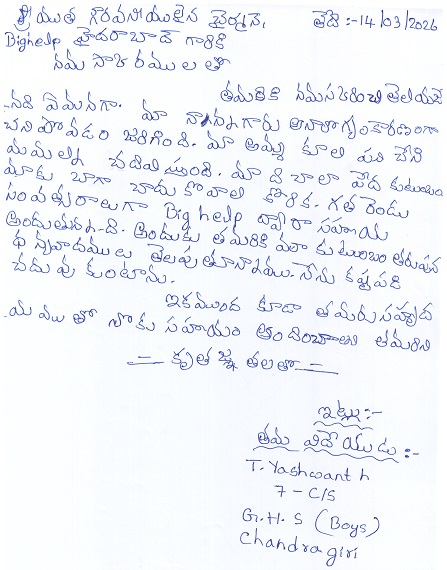 శ్రీయుత గౌరవనీయులైన చైర్మన్, తేది :-14/03/2026
Bighelp హైదరాబాద్ గారికి
నమస్కారములతో
తమరికి నమస్కరించి తెలియజే
-నది ఏమనగా. మా నాన్నగారు అనారోగ్యంకారణంగా
చనిపోవడం జరిగింది. మా అమ్మ కూలి పని చేసి
మమల్ని చదివిస్తుంది. మా ది చాలా పేద కుటుంబం
మాకు బాగా చదుకోవాలి కోరిక. గత రెండు
సంవత్సరాలుగా Bighelp ద్వారా సహాయ
అందుతున్న-ది. అందుకు తమరికి మా కుటుంబం తరుపున
ధన్యవాదములు తెలుపుతూన్నాము. నేను కష్టపడి
చదువుకుంటాను.
ఇకముందు కూడా తమరు సహృద
-యముతో నాకు సహాయం అందించాలి తమరిని
= కృతజ్ఞతలతో =
ఇట్లు:-
తమ విదేయుడు:-
T. Yashwanth
7-C/S
G.H.S (Boys)
Chandragiri